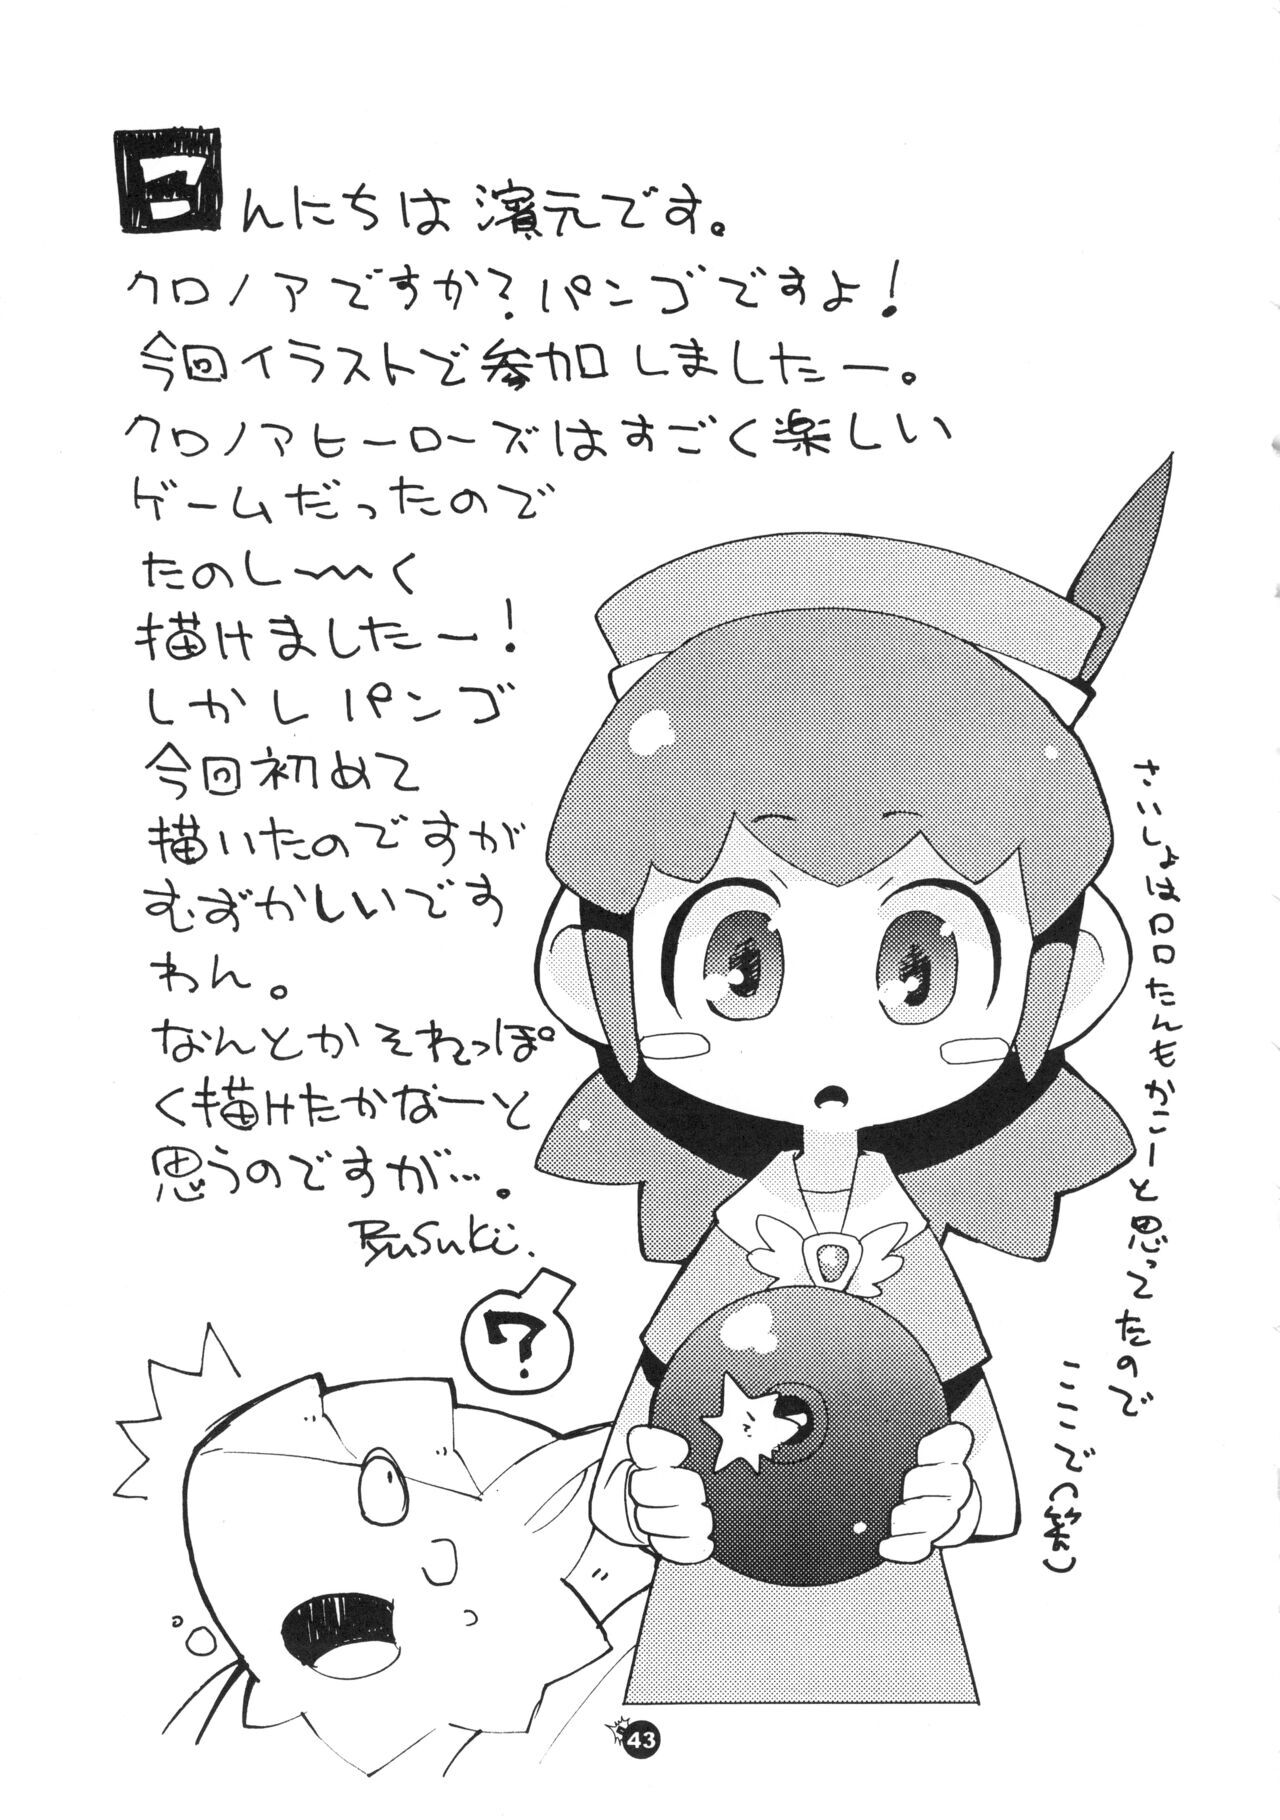 こんにちは 濱元です。
クロノアですか？パンゴですよ！
今回イラストで参加しましたー。
クロノアヒーローズはすごく楽しい
ゲームだったので
たのし〜〜く
描けましたー！
しかし パンゴ
今回初めて
描いたのですが
むずかしいです
わん。
なんとかそれっぽ
く描けたかなーと
思うのですが…。
Ryusuki.
さいしょはロロたんもかこーと思ってたので
ここで(笑)
?
43